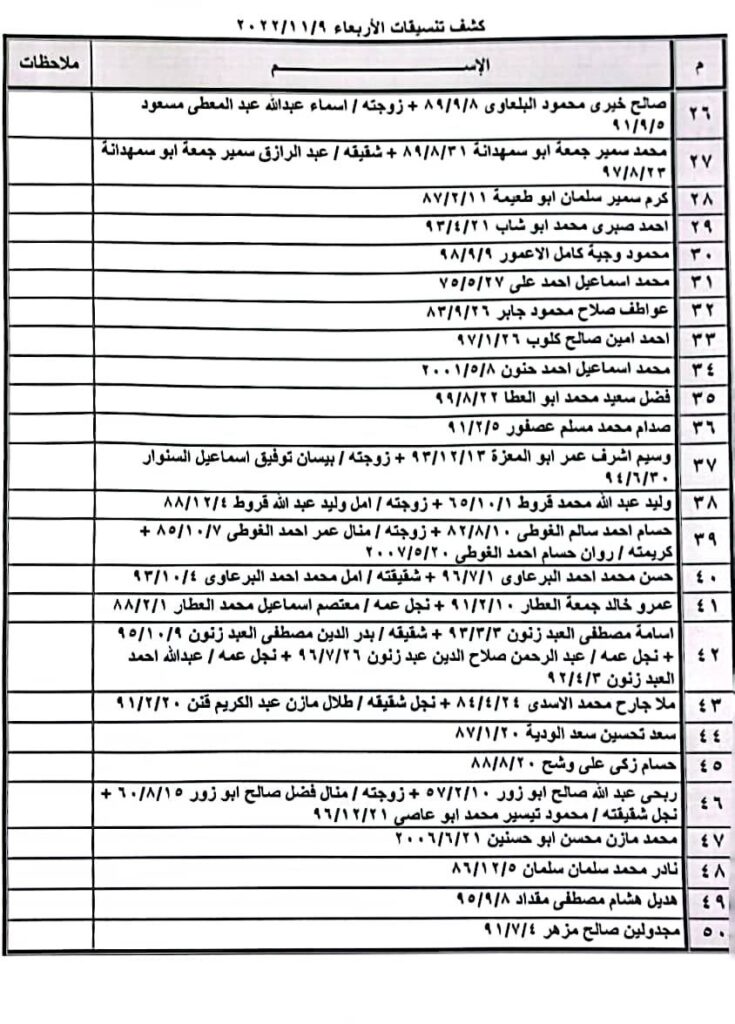 كشف تنسيقات الأربعاء ٢٠٢٢/١١/٩
م الإســـــــم ملاحظات
٢٦ صالح خيرى محمود البلعاوى ٨٩/٩/٨ + زوجته / اسماء عبدالله عبد المعطى مسعود
٩١/٩/٥
٢٧ محمد سمير جمعة ابو سمهدانة ٨٩/٨/٣١ + شقيقه / عبد الرازق سمير جمعة ابو سمهدانة
٩٧/٨/٢٣
٢٨ كرم سمير سلمان ابو طعيمة ٨٧/٢/١١
٢٩ احمد صبرى محمد ابو شاب ٩٣/٤/٢١
٣٠ محمود وجية كامل الاعمور ٩٨/٩/٩
٣١ محمد اسماعيل احمد على ٧٥/٥/٢٧
٣٢ عواطف صلاح محمود جابر ٨٣/٩/٢٦
٣٣ احمد امين صالح كلوب ٩٧/١/٢٦
٣٤ محمد اسماعيل احمد حنون ٢٠٠١/٥/٨
٣٥ فضل سعيد محمد ابو العطا ٩٩/٨/٢٢
٣٦ صدام محمد مسلم عصفور ٩١/٢/٥
٣٧ وسيم اشرف عمر ابو المعزة ٩٣/١٢/١٣ + زوجته / بيسان توفيق اسماعيل السنوار
٩٤/٦/٣٠
٣٨ وليد عبد الله محمد قروط ٦٥/١٠/١ + زوجته / امل وليد عبد الله قروط ٨٨/١٢/٤
٣٩ حسام احمد سالم الغوطى ٨٢/٨/١٠ + زوجته / منال عمر احمد الغوطى ٨٥/١٠/٧ +
كريمته / روان حسام احمد الغوطى ٢٠٠٧/٥/٢٠
٤٠ حسن محمد احمد البرعاوى ٩٦/٧/١ + شقيقته / امل محمد احمد البرعاوى ٩٣/١٠/٤
٤١ عمرو خالد جمعة العطار ٩١/٢/١٠ + نجل عمه / معتصم اسماعيل محمد العطار ٨٨/٢/١
٤٢ اسامة مصطفى العبد زنون ٩٣/٣/٣ + شقيقه / بدر الدين مصطفى العبد زنون ٩٥/١٠/٩
+ نجل عمه / عبد الرحمن صلاح الدين عبد زنون ٩٦/٧/٢٦ + نجل عمه / عبدالله احمد
العبد زنون ٩٢/٤/٣
٤٣ ملا جارح محمد الاسدى ٨٤/٤/٢٤ + نجل شقيقه / طلال مازن عبد الكريم قنن ٩١/٢/٢٠
٤٤ سعد تحسين سعد الودية ٨٧/١/٢٠
٤٥ حسام زكى على وشح ٨٨/٨/٢٠
٤٦ ربحى عبد الله صالح ابو زور ٥٧/٢/١٠ + زوجته / منال فضل صالح ابو زور ٦٠/٨/١٥ +
نجل شقيقته / محمود تيسير محمد ابو عاصي ٩٦/١٢/٢١
٤٧ محمد مازن محسن ابو حسنين ٢٠٠٦/٦/٢١
٤٨ نادر محمد سلمان سلمان ٨٦/١٢/٥
٤٩ هديل هشام مصطفى مقداد ٩٥/٩/٨
٥٠ مجدولين صالح مزهر ٩١/٧/٤